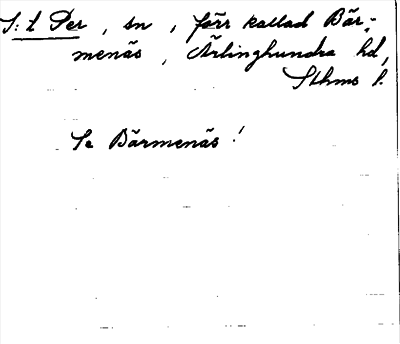 S:t Per, sn, förr kallad Bär-
menäs, Ärlinghundra hd,
Sthms l.
Se Bärmenäs!